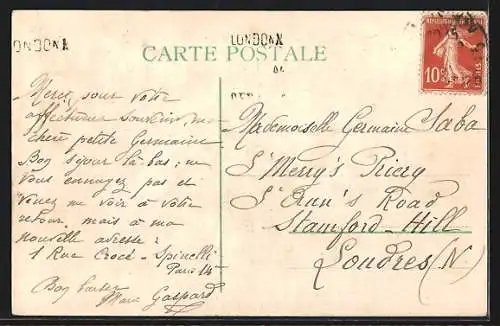 LONDON
LONDON
CARTE POSTALE
10
Merci pour votre
affectueux souvenir ma
chère petite Germaine
Bon séjour là-bas ; ne
vous ennuyez pas et
venez me voir à votre
retour mais à ma
nouvelle adresse :
1 Rue Crocé-Spinelli
Paris 14
Marie Gaspard
Mademoiselle Germaine Saba
St Merry's Priery
St Ann's Road
Stamford-Hill
Londres (N)